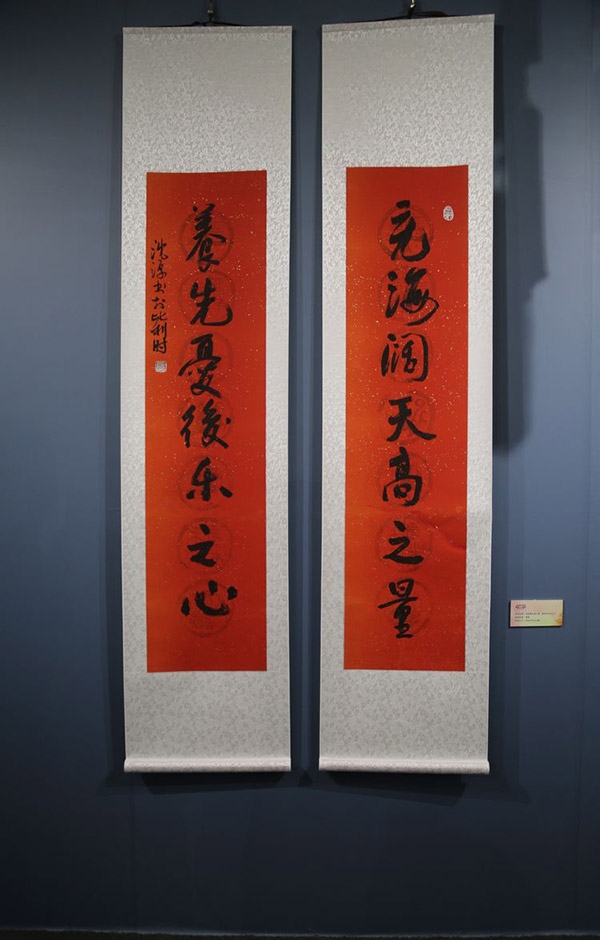 充海阔天高之量
養先憂後乐之心
书於比利时